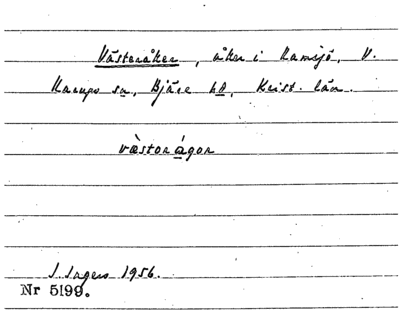 Västeråker, åker i Ramsjö, V.
Karups sn, Bjäre hd, Krist. län.
væ̀storágor
J. Ingers 1956.
Nr 5199.